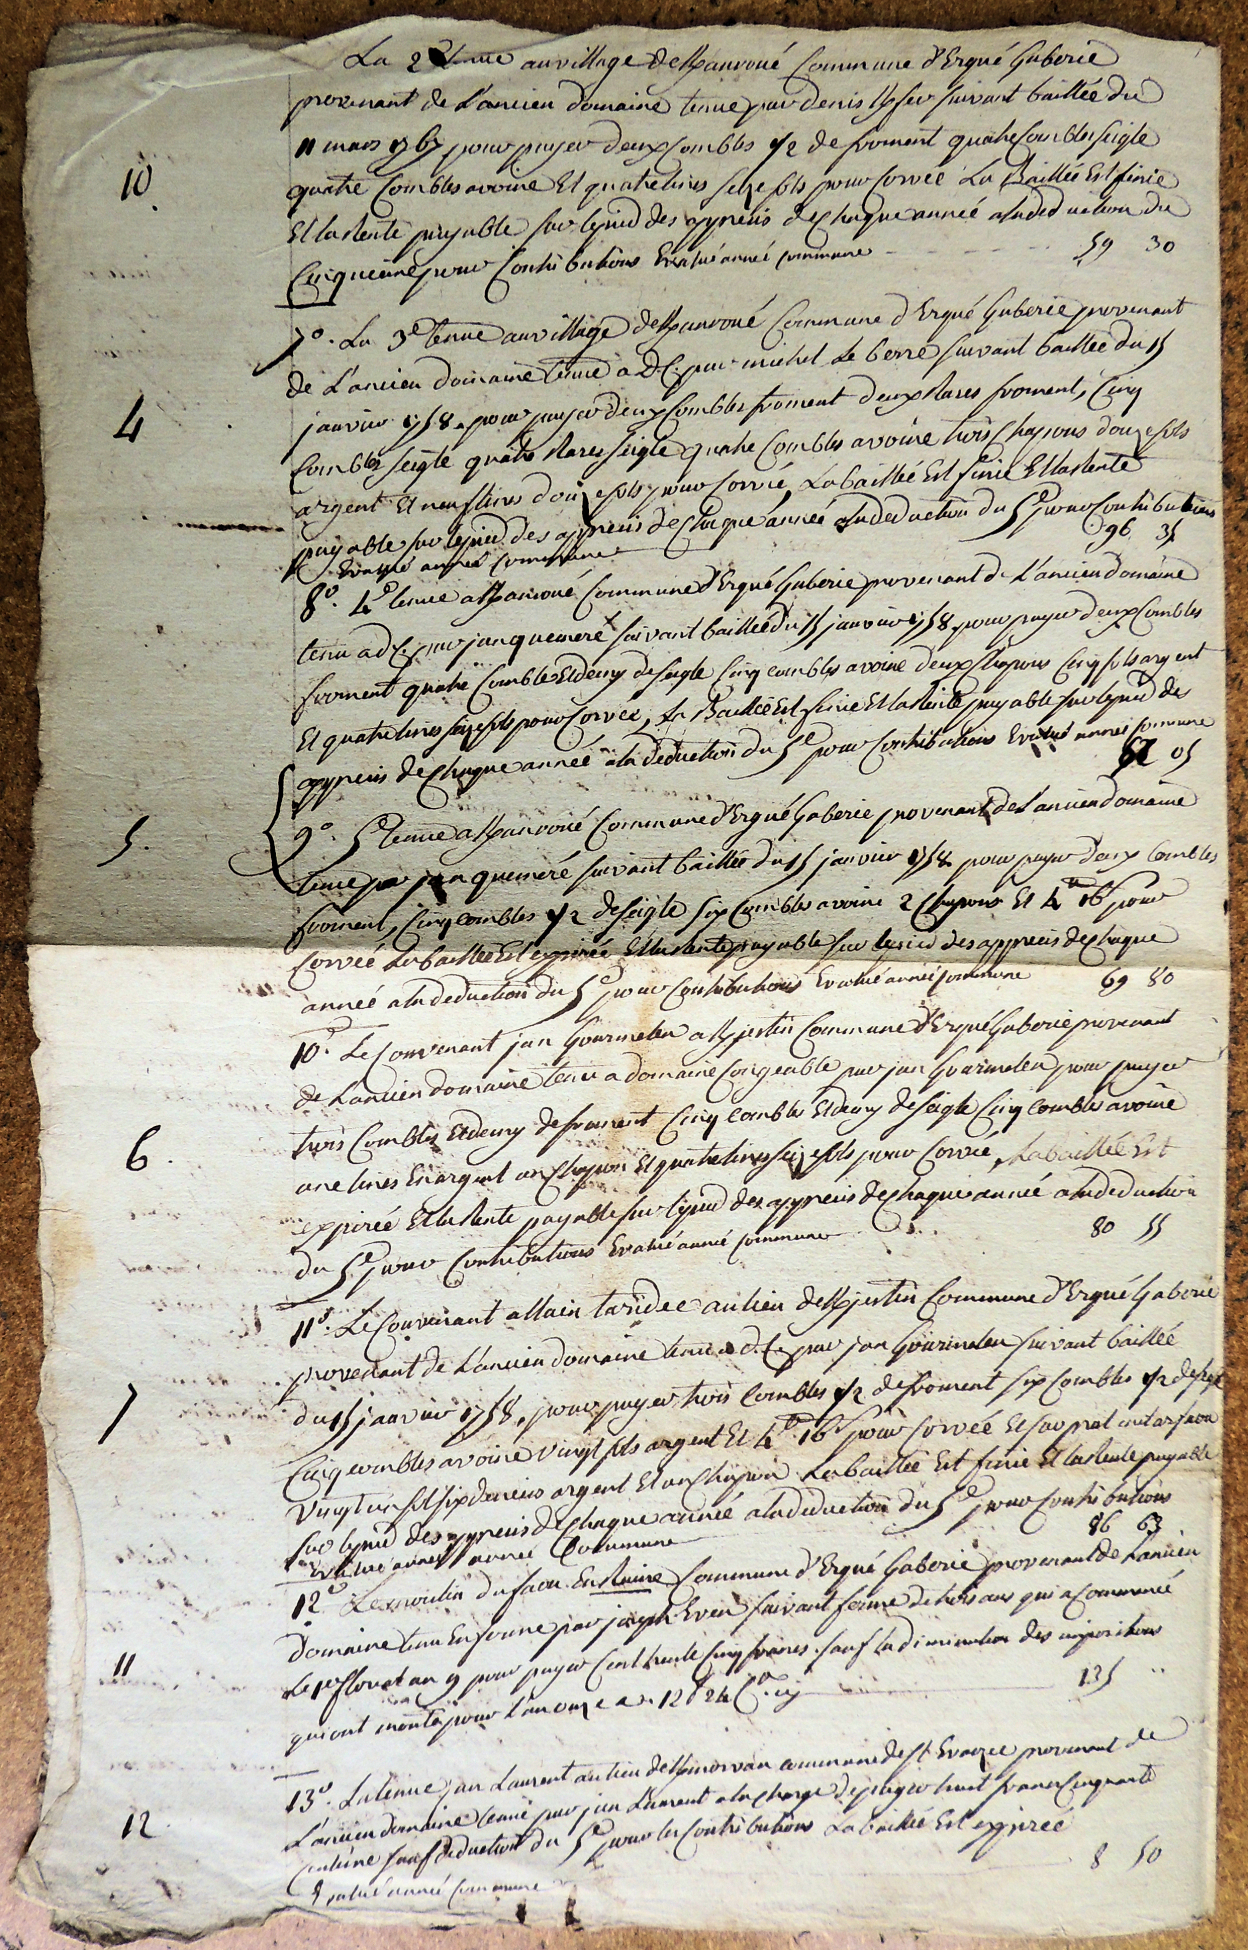 La 2e tenue au village de Kanvoué Commune d'Ergué Gaberic
provenant de L'ancien domaine tenue par denis suivant baillée du
11 mars 1767 pour payer deux Combles 1/2 de froment quatre Combles Seigle
10. quatre Combles avoine Et quatre livres seize sols pour Corvée La Baillée Est finie
Et la Rente payable sur le pied des apprecis de Chaque année a la deduction du
Cinquieme pour Contributions Evalué année Commune 59 30
7o. La 3e tenue au village de Kanvoué Commune d'Ergué Gaberic provenant
de L'ancien domaine tenue a D.C. par michel Le berre suivant baillée du 15
4. janvier 1758. pour payer deux Combles froment deux Rares froment, Cinq
Combles seigle quatre Rares Seigle quatre Combles avoine trois Chapons douze sols
argent Et neuf livres douze sols pour Corvée, La baillée Est finie Et la Rente
payable sur le pied des apprecis de Chaque année a la deduction du 5e pour Contributions
Evalué année Commune 96 35
8o. 4e tenue a Kanvoué Commune d'Ergué Gaberic provenant de L'ancien domaine
tenu a d.C. par jan quemeré suivant baillée du 15 janvier 1758. pour payer deux Combles
froment quatre Combles Et demy de seigle Cinq combles avoine deux Chapons Cinq sols argent
Et quatre livres seize sols pour Corvée, La Baillée Est finie Et la Rente payable sur le pied des
apprecis de Chaque année a la deduction du 5e pour Contributions Evalué année Commune
05
9o. 5e tenue a Kanvoué Commune d'Ergué Gaberic provenant de L'ancien domaine
5. tenue par jan quemeré suivant baillée du 15 janvier 1758 pour payer deux Combles
froment, Cinq combles 1/2 de seigle six Combles avoine 2 Chapons Et 4# 16s pour
Corvée La baillée Est expirée Et la Rente payable sur le pied des apprecis de Chaque
année a la deduction du 5e pour Contributions Evalué année Commune 69 80
10o. Le Convenant jan Gourmelen a Kjestin Commune d'Ergué Gaberic provenant
de L'ancien domaine tenu a domaine Congeable par jan Gourmelen pour payer
trois Combles Et demy de froment Cinq Combles Et demy de seigle Cinq Combles avoine
6. une livres En argent un Chapon Et quatre livres seize sols pour Corvée, La baillée Est
expirée Et la Rente payable sur le pied des apprecis de Chaque année a la deduction
du 5e pour Contributions Evalué année Commune 80 55
11o. Le Convenant allain taridec au lieu de Kjestin Commune d'Ergué Gaberic
provenant de L'ancien domaine tenu a d.C. par jan Gourmelen suivant baillée
7 du 15 janvier 1758. pour payer trois Combles 1/2 de froment six Combles 1/2 de seigle
Cinq combles avoine vingt sols argent Et 4# 16s pour Corvée Et sur prat
Vingt un sol six deniers argent Et un Chapon La baillée Est finie Et la Rente payable
sur le pied des apprecis de Chaque année a la deduction du 5e pour Contributions
Evalué année Commune 86 63
12o. Le moulin du faou En Ruine Commune d'Ergué Gaberic provenant de L'ancien
Domaine tenu En ferme par joseph Even suivant ferme de trois ans qui a Commencé
11 Le 1er floreal an 9 pour payer Cent trente Cinq francs sauf la diminution des impositions
qui ont monté pour L'an onze a 12f 24 Cy 135 "
13o. La tenue jan Laurent au lieu de commune de St Evarzec provenant de
12. L'ancien domaine tenue par jan Laurent a la charge de payer huit francs Cinquante
Centime sauf deduction du 5e pour les Contributions La baillée Est expirée
Evalué année Commune 8 50